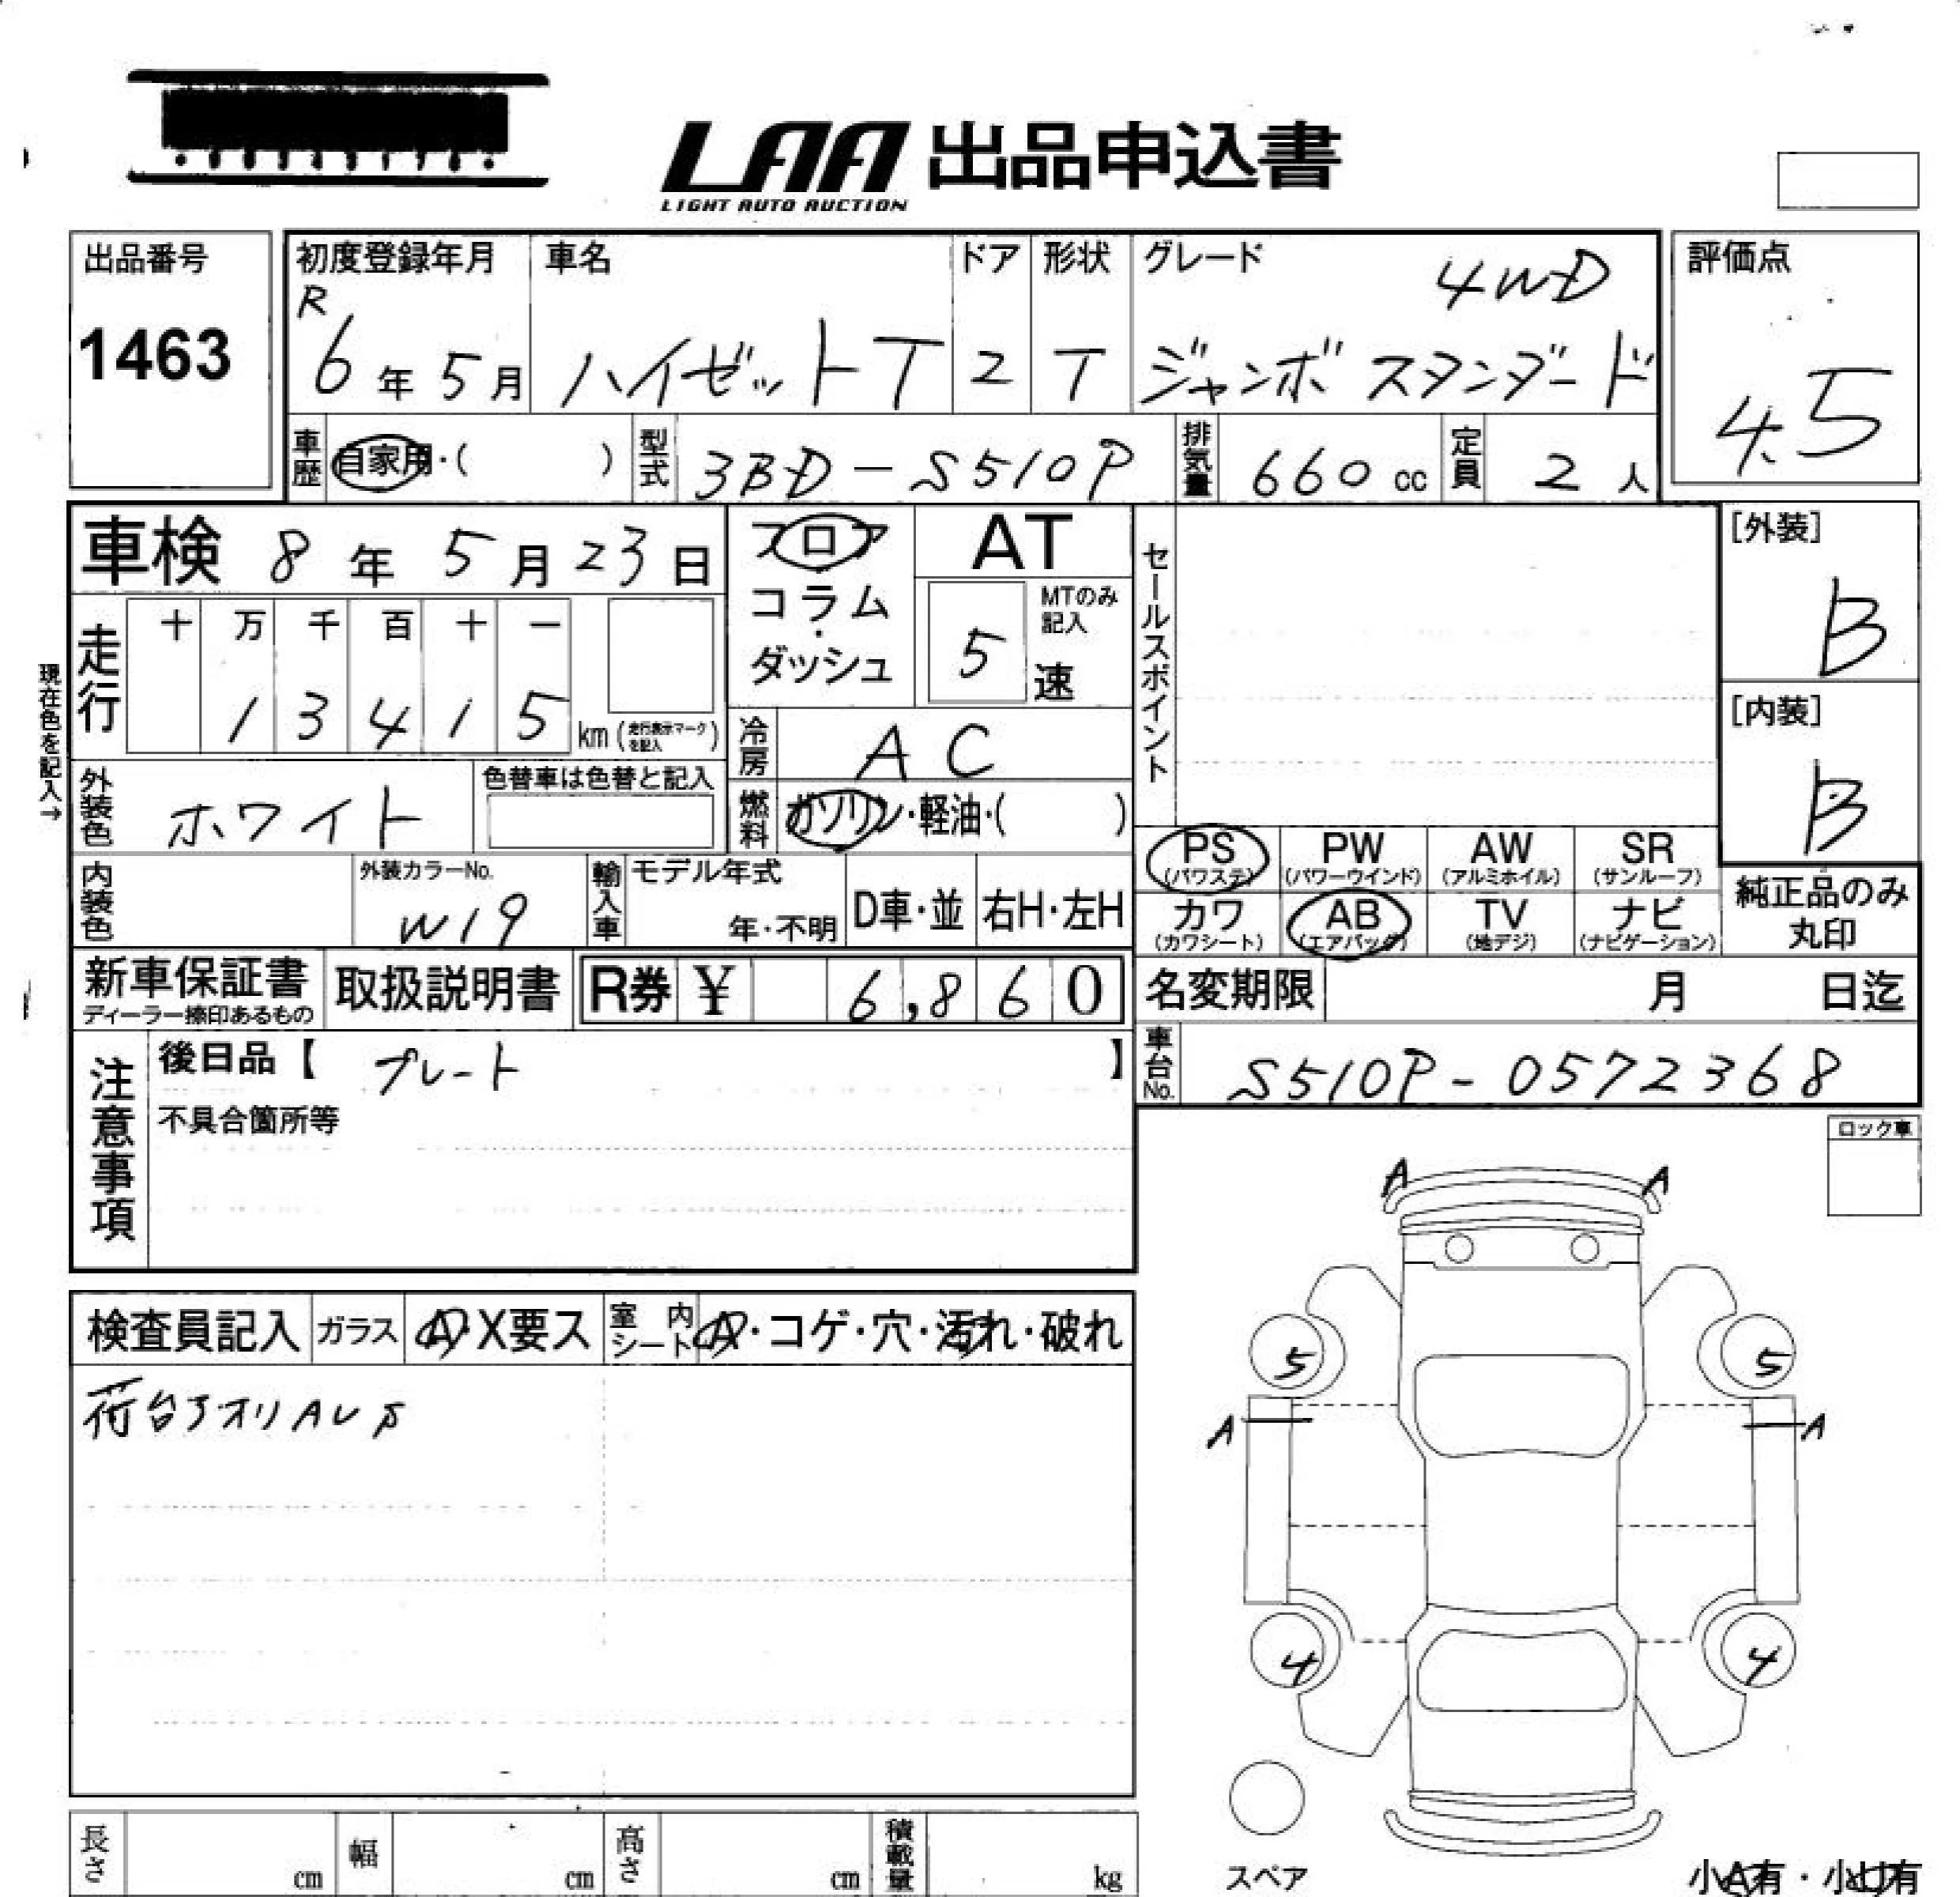 LAA 出品申込書
LIGHT AUTO AUCTION
出品番号
1463
初度登録年月
R
6年5月
車名
ハイゼットT
ドア
2
形状
T
グレード
4WD
ジャンボ スタンダード
評価点
4.5
車歴 自家用・( )
型式 3BD-S510P
排気量 660 cc
定員 2人
車検 8年5月23日
現在色を記入→
走行
十 万 千 百 十 一
1 3 4 1 5 km (走行表示マークを記入)
外装色 ホワイト
色替車は色替と記入
内装色
外装カラーNo.
W19
フロア
コラム
・
ダッシュ
AT
MTのみ記入
5速
冷房 AC
燃料 ガソリン・軽油・( )
輸入車 モデル年式
年・不明
D車・並
右H・左H
セールスポイント
[外装]
B
[内装]
B
PS (パワステ)
PW (パワーウインド)
AW (アルミホイル)
SR (サンルーフ)
カワ (カワシート)
AB (エアバッグ)
TV (地デジ)
ナビ (ナビゲーション)
純正品のみ
丸印
新車保証書
ディーラー捺印あるもの
取扱説明書
R券 ¥ 6,860
名変期限 月 日迄
車台No. S510P-0572368
注意事項
後日品【 プレート 】
不具合箇所等
ロック車
検査員記入
ガラス A・X要ス
室内シート A・コゲ・穴・汚れ・破れ
荷台アオリAU
A A
5 5
A A
4 4
スペア
小A有・小U有
長さ cm
幅 cm
高さ cm
積載量 kg